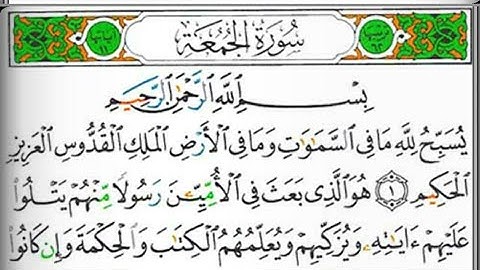 سُورَةُ الجُمُعَةِ
بِسْمِ اللَّهِ الرَّحْمَٰنِ الرَّحِيمِ
يُسَبِّحُ لِلَّهِ مَا فِي السَّمَاوَاتِ وَمَا فِي الْأَرْضِ الْمَلِكِ الْقُدُّوسِ الْعَزِيزِ
الْحَكِيمِ ١ هُوَ الَّذِي بَعَثَ فِي الْأُمِّيِّينَ رَسُولًا مِّنْهُمْ يَتْلُوا
عَلَيْهِمْ ءَايَاتِهِ وَيُزَكِّيهِمْ وَيُعَلِّمُهُمُ الْكِتَابَ وَالْحِكْمَةَ وَإِن كَانُوا